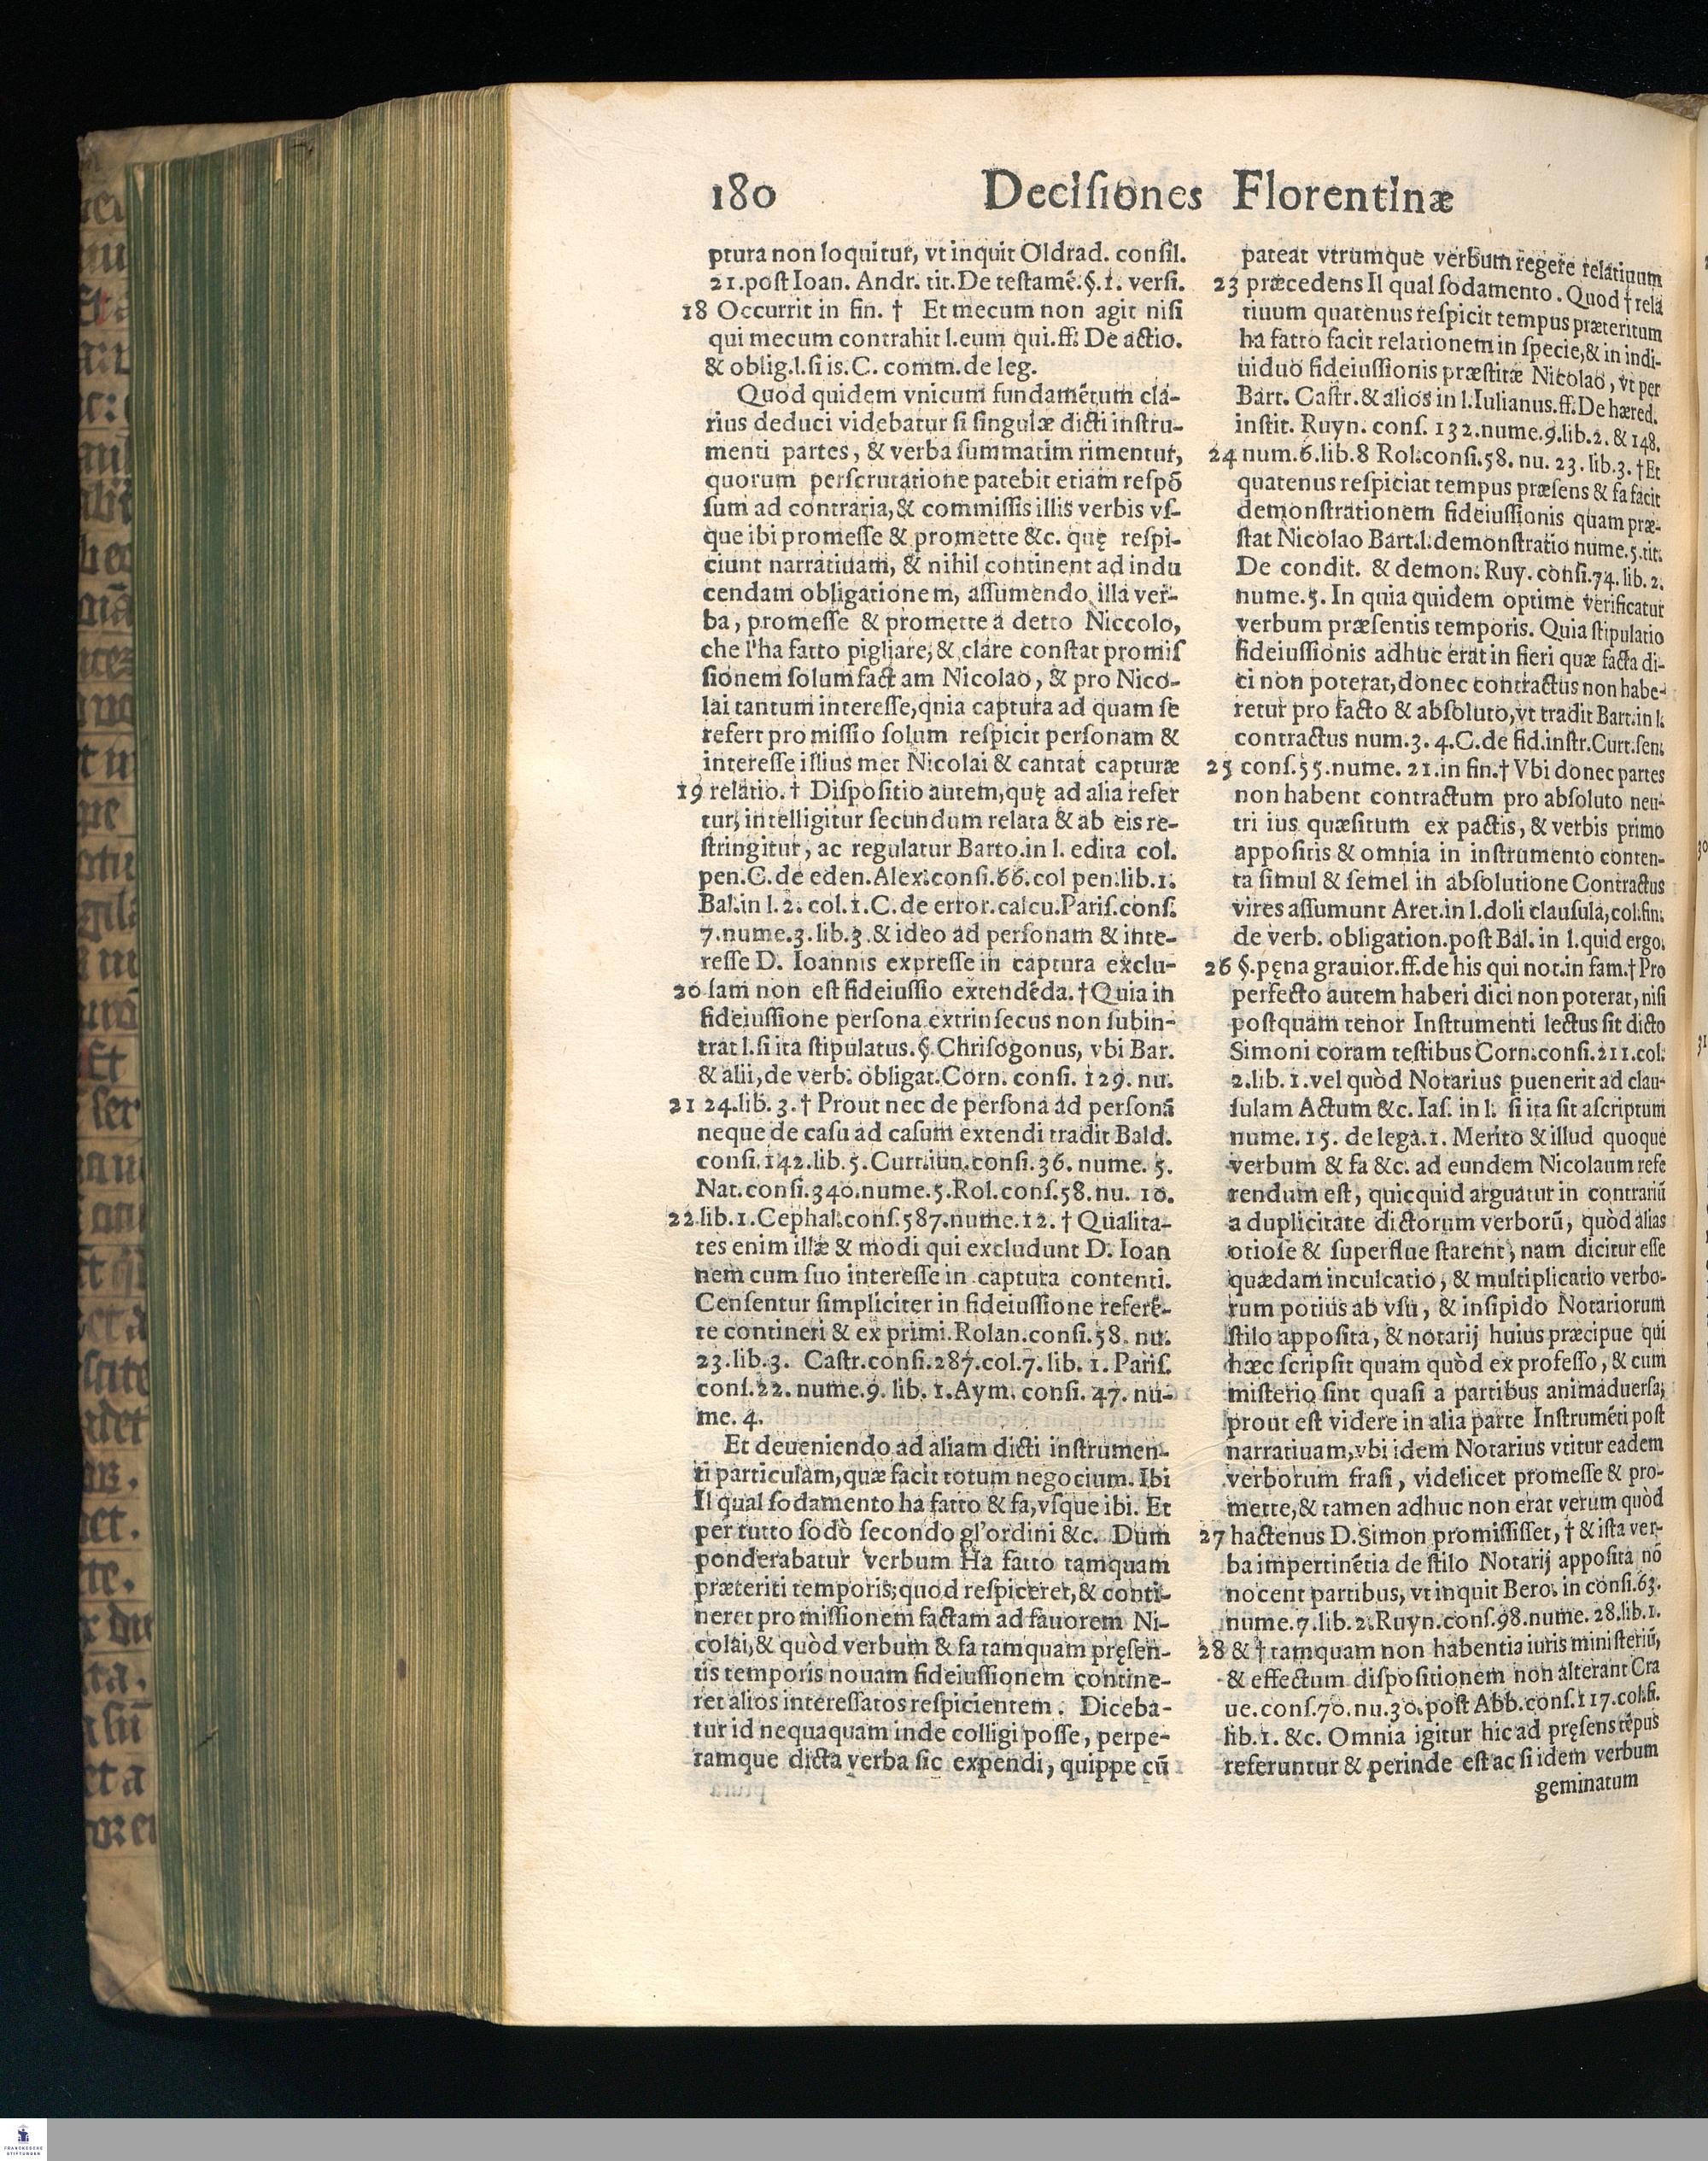 180
Decisiones Florentinæ
ptura non loquitur, vt inquit Oldrad. consil.
21.post Ioan. Andr. tit. De testamẽ.§.1. versi.
18 Occurrit in fin. † Et mecum non agit nisi
qui mecum contrahit l.eum qui.ff. De actio.
& oblig.l.si is.C. comm.de leg.
Quod quidem vnicum fundamẽtum cla-
rius deduci videbatur si singulæ dicti instru-
menti partes, & verba summatim rimentur,
quorum perscrutatione patebit etiam respõ
sum ad contraria, & commissis illis verbis vs-
que ibi promesse & promette &c. quę respi-
ciunt narratiuam, & nihil continent ad indu
cendam obligationem, assumendo illa ver-
ba, promesse & promette a detto Niccolo,
che l'ha fatto pigliare, & clare constat promis
sionem solum fact am Nicolao, & pro Nico-
lai tantum interesse, qnia captura ad quam se
refert promissio solum respicit personam &
interesse illius met Nicolai & cantat capturæ
19 relatio. † Dispositio autem, quę ad alia refer
tur, intelligitur secundum relata & ab eis re-
stringitur, ac regulatur Barto.in l. edita col.
pen.C.de eden.Alex.consi.66.col pen.lib.1.
Bal.in l.2. col.1.C. de error.calcu.Paris.cons.
7.nume.3.lib.3.& ideo ad personam & inte-
resse D. Ioannis expresse in captura exclu-
20 sam non est fideiussio extendẽda. † Quia in
fideiussione persona extrinsecus non subin-
trat l.si ita stipulatus.§.Chrisogonus, vbi Bar.
& alii, de verb. obligat.Corn. consi. 129. nu.
21 24.lib. 3. † Prout nec de persona ad personã
neque de casu ad casum extendi tradit Bald.
consi.142.lib.5.Curt.iun.consi.36. nume. 5.
Nat.consi.340.nume.5.Rol.cons.58.nu. 10.
22 lib.1.Cephal.cons.587.nume.12. † Qualita-
tes enim illæ & modi qui excludunt D. Ioan
nem cum suo interesse in captura contenti.
Censentur simpliciter in fideiussione referẽ-
te contineri & ex primi.Rolan.consi.58. nu.
23.lib.3. Castr.consi.287.col.7.lib. 1. Paris.
cons.22. nume.9. lib. 1.Aym. consi. 47. nu-
me. 4.
Et deueniendo ad aliam dicti instrumen-
ti particulam, quæ facit totum negocium. Ibi
Il qual sodamento ha fatto & fa, vsque ibi. Et
per tutto sodò secondo gl'ordini &c. Dum
ponderabatur verbum Ha fatto tamquam
præteriti temporis; quod respiceret, & conti-
neret promissionem factam ad fauorem Ni-
colai, & quòd verbum & fa tamquam pręsen-
tis temporis nouam fideiussionem contine-
ret alios interessatos respicientem. Diceba-
tur id nequaquam inde colligi posse, perpe-
ramque dicta verba sic expendi, quippe cũ
pateat vtrumque verbum regere relatiuum
23 præcedens Il qual sodamento. Quod † rela
tiuum quatenus respicit tempus præteritum
ha fatto facit relationem in specie, & in indi-
uiduo fideiussionis præstitæ Nicolao, vt per
Bart. Castr. & alios in l.Iulianus.ff. De hæred.
instit. Ruyn. cons. 132.nume.9.lib.2. & 148.
24 num.6.lib.8 Rol.consi.58. nu. 23. lib.3. † Et
quatenus respiciat tempus præsens & fa facit
demonstrationem fideiussionis quam præ-
stat Nicolao Bart.l.demonstratio nume.5.tit.
De condit. & demon. Ruy. consi.74. lib. 2.
nume.5. In quia quidem optime verificatur
verbum præsentis temporis. Quia stipulatio
fideiussionis adhuc erat in fieri quæ facta di-
ci non poterat, donec contractus non habe-
retur pro facto & absoluto, vt tradit Bart.in l.
contractus num.3. 4.C.de fid.instr.Curt.sen.
25 cons.55.nume. 21.in fin.† Vbi donec partes
non habent contractum pro absoluto neu-
tri ius quæsitum ex pactis, & verbis primo
appositis & omnia in instrumento conten-
ta simul & semel in absolutione Contractus
vires assumunt Aret.in l.doli clausula, col.fin.
de verb. obligation.post Bal. in l.quid ergo.
26 §.pęna grauior.ff.de his qui not.in fam.† Pro
perfecto autem haberi dici non poterat, nisi
postquam tenor Instrumenti lectus sit dicto
Simoni coram testibus Corn.consi.211.col.
2.lib. 1.vel quòd Notarius puenerit ad clau-
sulam Actum &c. Ias. in l. si ita sit ascriptum
nume. 15. de lega.1. Merito & illud quoque
verbum & fa &c. ad eundem Nicolaum refe
rendum est, quicquid arguatur in contrariũ
a duplicitate dictorum verborũ, quòd alias
otiose & superflue starent, nam dicitur esse
quædam inculcatio, & multiplicatio verbo-
rum potius ab vsu, & insipido Notariorum
stilo apposita, & notarij huius præcipue qui
hæc scripsit quam quòd ex professo, & cum
misterio sint quasi a partibus animaduersa;
prout est videre in alia parte Instrumẽti post
narratiuam, vbi idem Notarius vtitur eadem
verborum frasi, videlicet promesse & pro-
mette, & tamen adhuc non erat verum quòd
27 hactenus D.Simon promisisset, † & ista ver-
ba impertinẽtia de stilo Notarij apposita nõ
nocent partibus, vt inquit Bero. in consi.63.
nume.7.lib.2.Ruyn.cons.98.nume. 28.lib.1.
28 & † tamquam non habentia iuris ministeriũ,
& effectum dispositionem non alterant Cra
ue.cons.70.nu.30.post Abb.cons.117.col.fi.
lib.1. &c. Omnia igitur hic ad pręsens tẽpus
referuntur & perinde est ac si idem verbum
geminatum